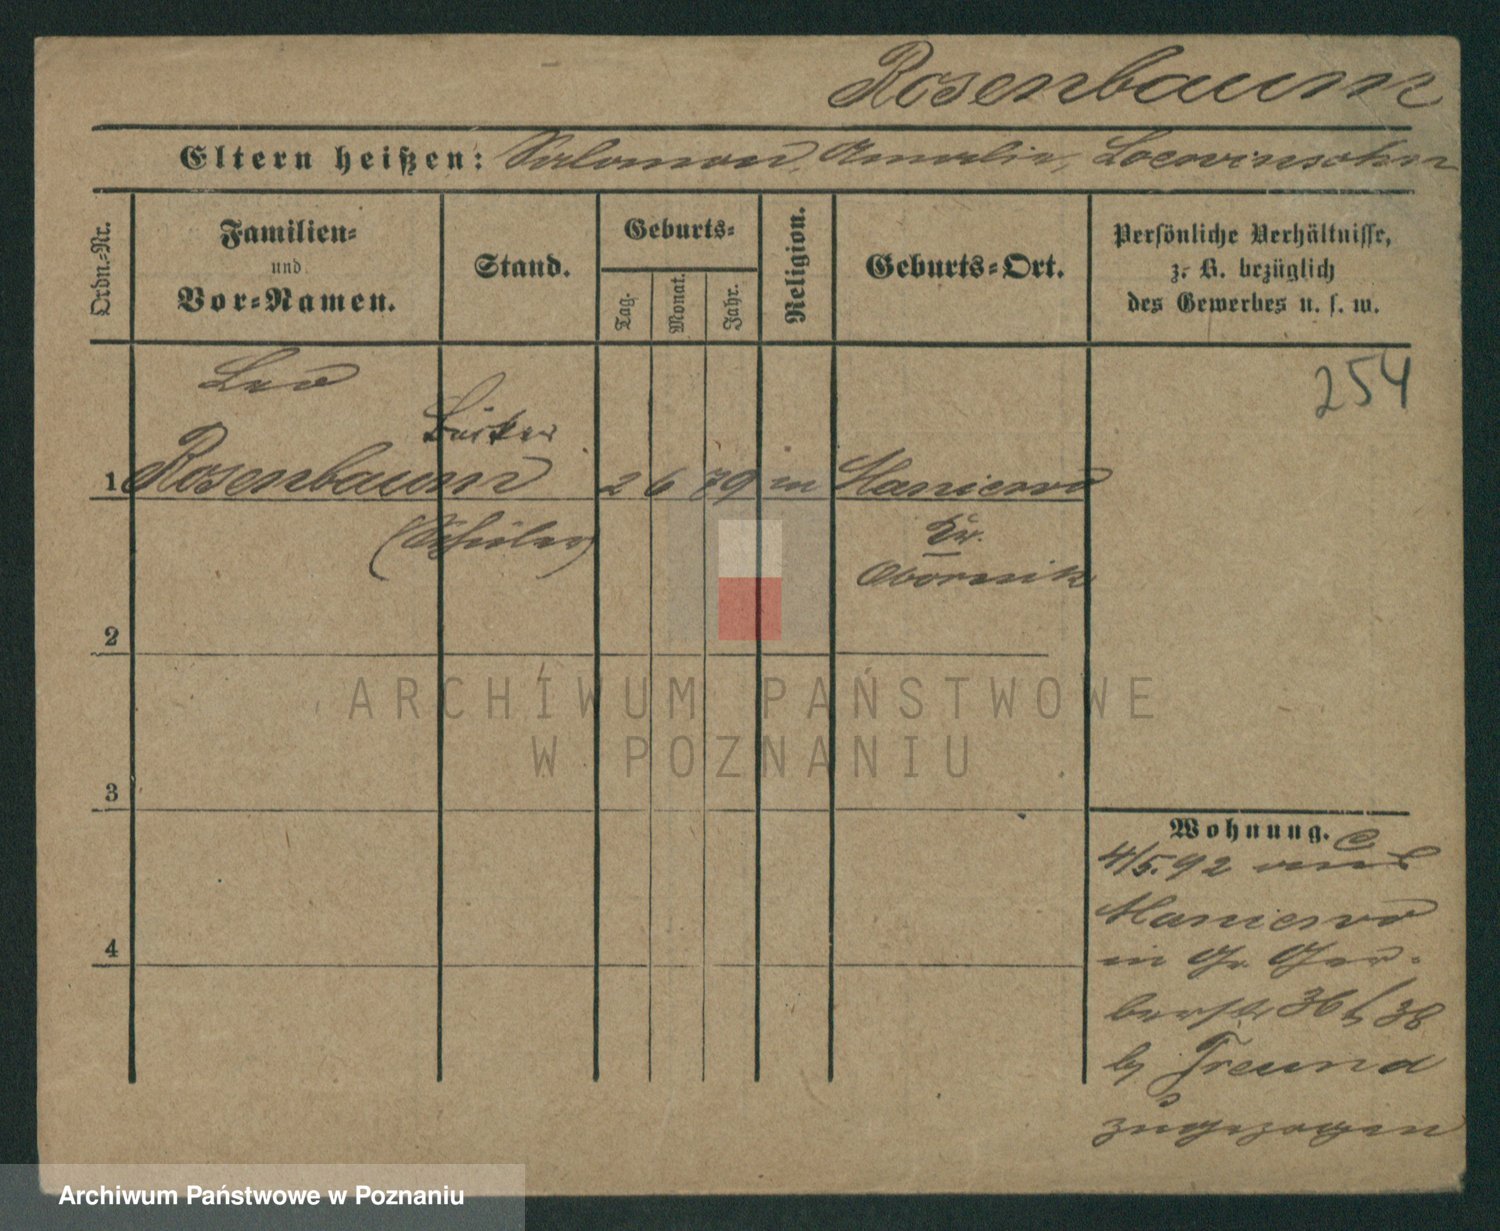 Rosenbaum
Eltern heißen: Salomon, Amalie, Loewinsohn
Ordn.-Nr.
Familien-
und
Vor-Namen.
Stand.
Geburts-
Tag.
Monat.
Jahr.
Religion.
Geburts-Ort.
Persönliche Verhältnisse,
z. B. bezüglich
des Gewerbes u. s. w.
254
Leo
Bäcker
1 Rosenbaum 2 6 79 m Maniewo
(Schüler)
Kr.
Obornik
2
3
4
Wohnung.
4/5.92 aus
Maniewo
in Gr. Ger-
berstr 36/38
b/ Freund
zugezogen
ARCHIWUM PAŃSTWOWE
W POZNANIU
Archiwum Państwowe w Poznaniu